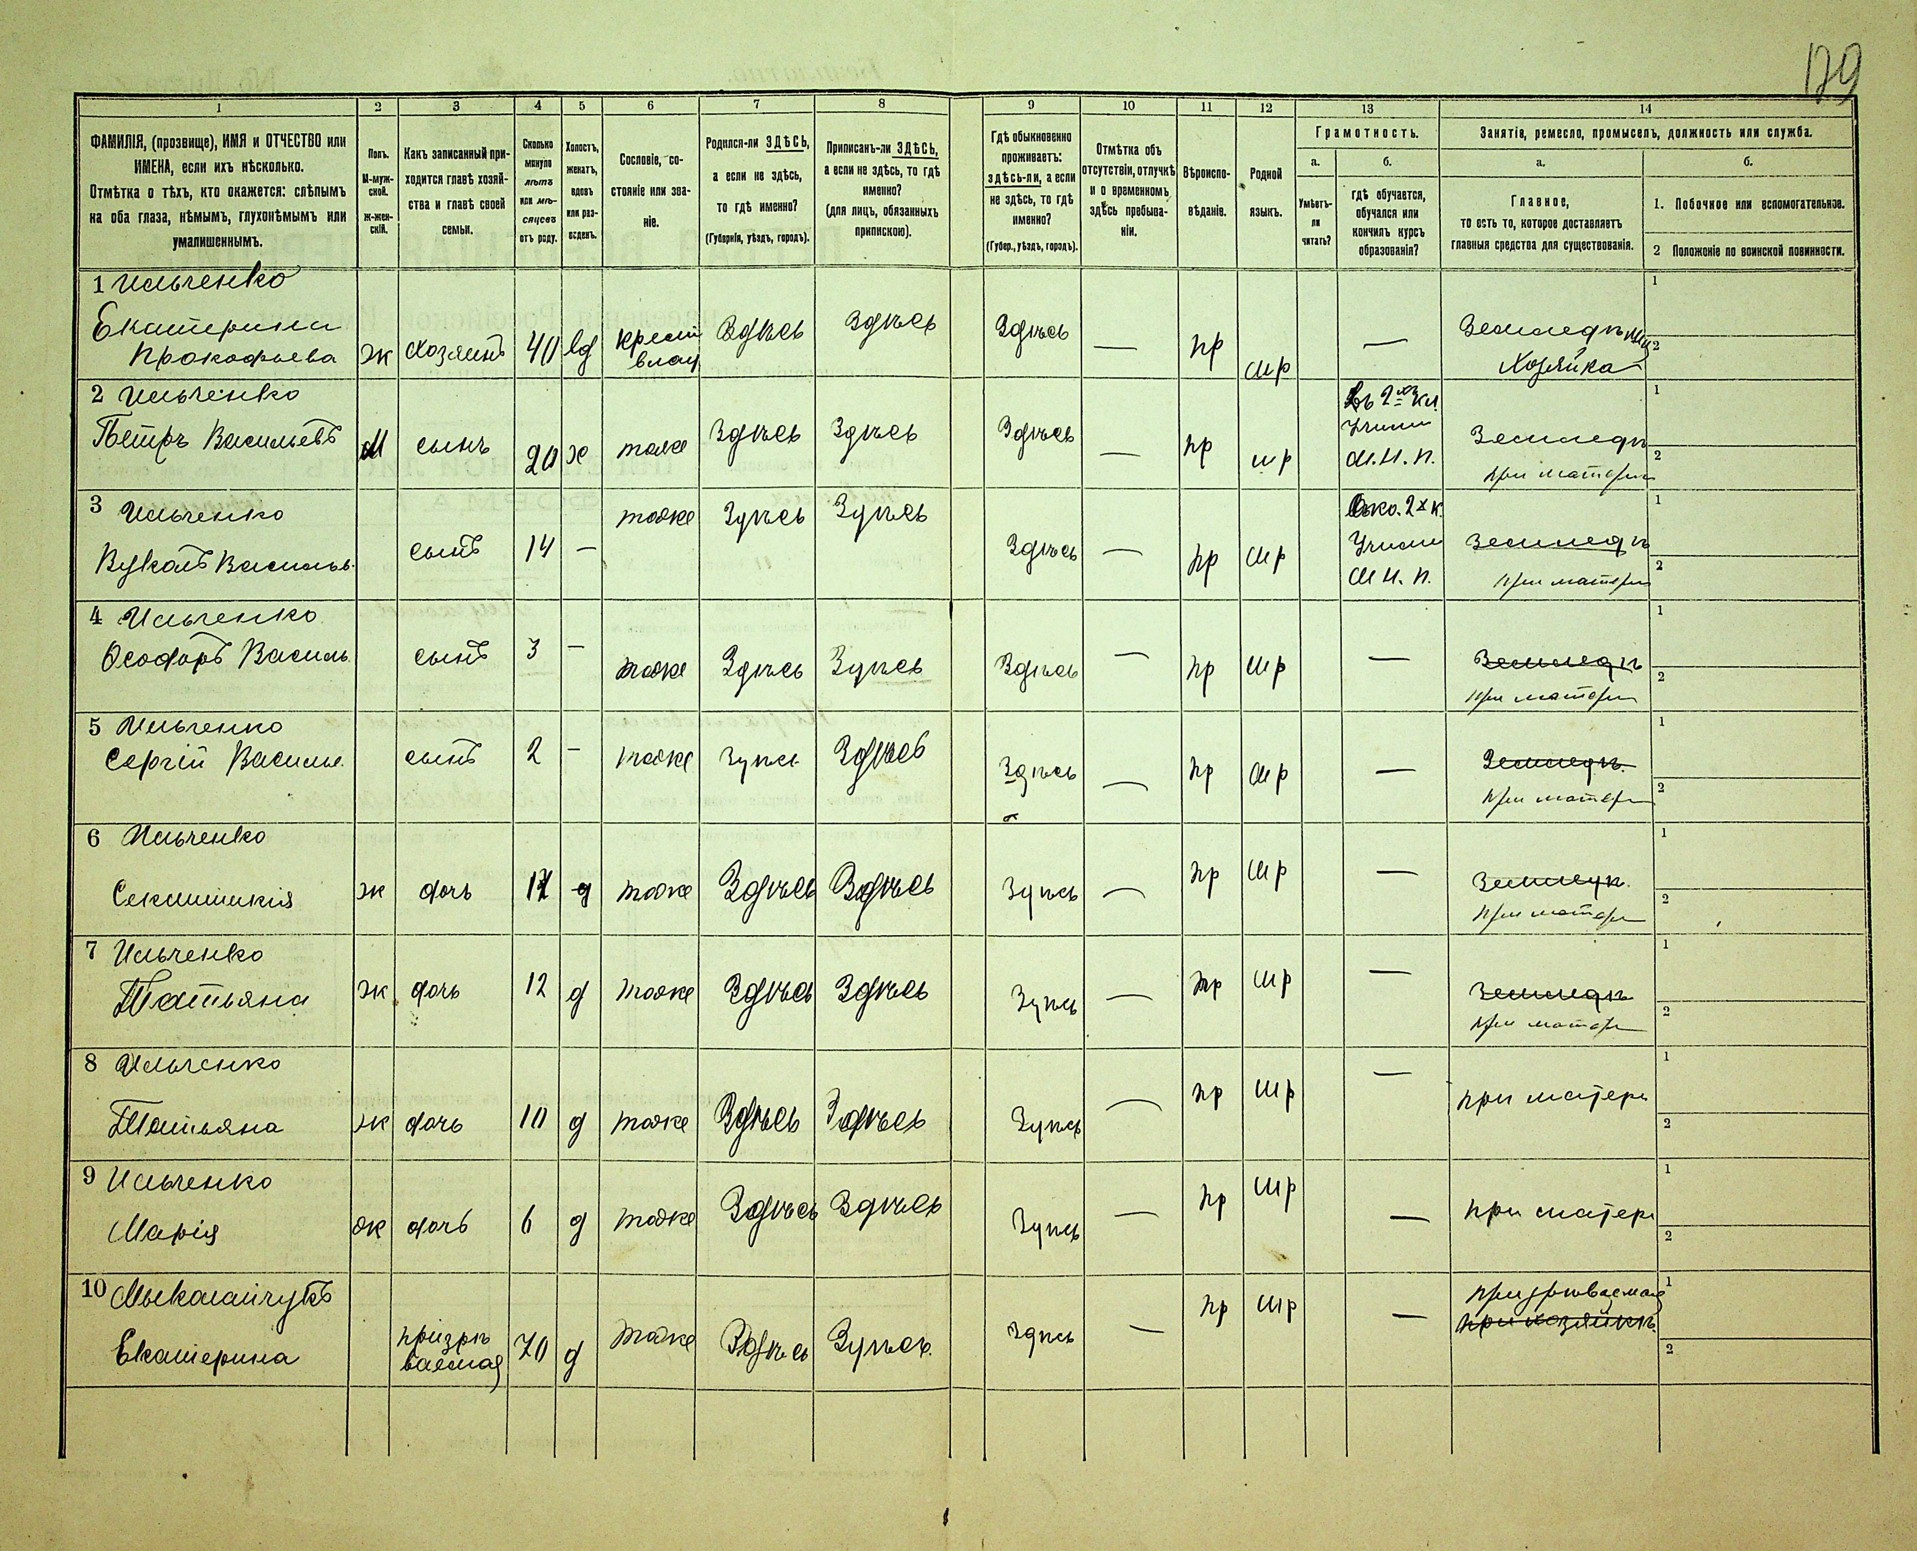 179
1 2 3 4 5 6 7 8 9 10 11 12 13 14
ФАМИЛІЯ, (прозвище), ИМЯ и ОТЧЕСТВО или
ИМЕНА, если ихъ нѣсколько.
Отмѣтка о тѣхъ, кто окажется: слѣпымъ
на оба глаза, нѣмымъ, глухонѣмымъ или
умалишеннымъ.
Полъ.
М-муж-
ской.
Ж-жен-
скій.
Какъ записанный при-
ходится главѣ хозяй-
ства и главѣ своей
семьи.
Сколько
минуло
лѣтъ
или мѣ-
сяцевъ
отъ роду.
Холостъ,
женатъ,
вдовъ
или раз-
веденъ.
Сословіе, со-
стояніе или зва-
ніе.
Родился-ли ЗДѢСЬ,
а если не здѣсь,
то гдѣ именно?
(Губернія, уѣздъ, городъ).
Приписанъ-ли ЗДѢСЬ,
а если не здѣсь, то гдѣ
именно?
(для лицъ, обязанныхъ
припискою).
Гдѣ обыкновенно
проживаетъ:
здѣсь-ли, а если
не здѣсь, то гдѣ
именно?
(Губер., уѣздъ, городъ).
Отмѣтка объ
отсутствіи, отлучкѣ
и о временномъ
здѣсь пребыва-
ніи.
Вѣроиспо-
вѣданіе.
Родной
языкъ.
Грамотность.
а.
Умѣетъ-
ли
читать?
б.
гдѣ обучается,
обучался или
кончилъ курсъ
образованія?
Занятія, ремесло, промыселъ, должность или служба.
а.
Главное,
то есть то, которое доставляетъ
главныя средства для существованія.
б.
1. Побочное или вспомогательное.
2 Положеніе по воинской повинности.
1 Ильченко
Екатерина
Прокофьева ж хозяинъ 40 вд крест влад Здѣсь Здѣсь Здѣсь — пр мр — Земледѣл
Хозяйка
1
2
2 Ильченко
Петръ Васильевъ М сынъ 20 х тоже Здѣсь Здѣсь Здѣсь — пр мр
М. Н. П.
Земледѣ
при матери
1
2
3 Ильченко
Васильев. сынъ 14 — тоже Здѣсь Здѣсь Здѣсь — пр мр
М Н. П.
Земледѣ
при матери
1
2
4 Ильченко
Ѳеодоръ Василь. сынъ 3 — тоже Здѣсь Здѣсь Здѣсь — пр мр — Земледѣ
при матери
1
2
5 Ильченко
Сергій Василье. сынъ 2 — тоже Здѣсь Здѣсь Здѣсь — пр мр — Земледѣ.
при матери
1
2
6 Ильченко
ж дочь д тоже Здѣсь Здѣсь Здѣсь — пр мр — Земледѣ.
при матери
1
2
7 Ильченко
Татьяна ж дочь 12 д тоже Здѣсь Здѣсь Здѣсь — пр мр — Земледѣ
при матери
1
2
8 Ильченко
Татьяна ж дочь 10 д тоже Здѣсь Здѣсь Здѣсь — пр мр — при матери
1
2
9 Ильченко
Марія ж дочь 6 д тоже Здѣсь Здѣсь Здѣсь — пр мр — при матери
1
2
10 Мыколайчукъ
Екатерина призрѣваемая 70 д тоже Здѣсь Здѣсь. Здѣсь — пр мр — призрѣваемая
при хозяйкѣ.
1
2